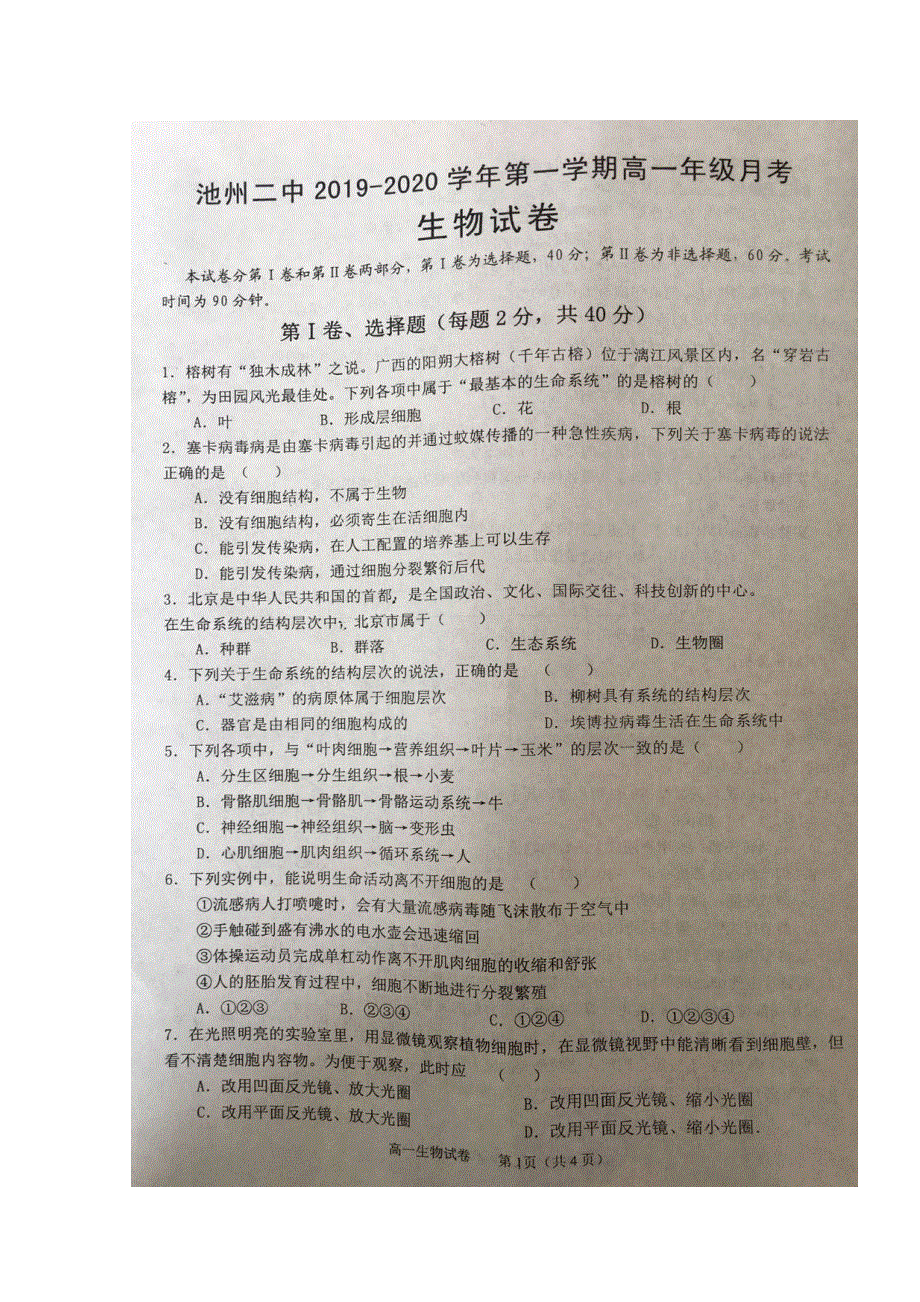 池州二中 2019-2020 学年第一学期高一年级月考
生物试卷
本试卷分第Ⅰ卷和第Ⅱ卷两部分，第Ⅰ卷为选择题，40分；第Ⅱ卷为非选择题，60分。考试
时间为90分钟。
第Ⅰ卷、选择题（每题2分，共40分）
1．榕树有“独木成林”之说。广西的阳朔大榕树（千年古榕）位于漓江风景区内，名“穿岩古
榕”，为田园风光最佳处。下列各项中属于“最基本的生命系统”的是榕树的（　　）
A．叶　B．形成层细胞　C．花　D．根
2．塞卡病毒病是由塞卡病毒引起的并通过蚊媒传播的一种急性疾病，下列关于塞卡病毒的说法
正确的是　（　　）
A．没有细胞结构，不属于生物
B．没有细胞结构，必须寄生在活细胞内
C．能引发传染病，在人工配置的培养基上可以生存
D．能引发传染病，通过细胞分裂繁衍后代
3．北京是中华人民共和国的首都，是全国政治、文化、国际交往、科技创新的中心。
在生命系统的结构层次中，北京市属于（　　）
A．种群　B．群落　C．生态系统　D．生物圈
4．下列关于生命系统的结构层次的说法，正确的是　（　　）
A．“艾滋病”的病原体属于细胞层次　B．柳树具有系统的结构层次
C．器官是由相同的细胞构成的　D．埃博拉病毒生活在生命系统中
5．下列各项中，与“叶肉细胞→营养组织→叶片→玉米”的层次一致的是（　　）
A．分生区细胞→分生组织→根→小麦
B．骨骼肌细胞→骨骼肌→骨骼运动系统→牛
C．神经细胞→神经组织→脑→变形虫
D．心肌细胞→肌肉组织→循环系统→人
6．下列实例中，能说明生命活动离不开细胞的是　（　　）
①流感病人打喷嚏时，会有大量流感病毒随飞沫散布于空气中
②手触碰到盛有沸水的电水壶会迅速缩回
③体操运动员完成单杠动作离不开肌肉细胞的收缩和舒张
④人的胚胎发育过程中，细胞不断地进行分裂繁殖
A．①②③　B．②③④　C．①②④　D．①②③④
7．在光照明亮的实验室里，用显微镜观察植物细胞时，在显微镜视野中能清晰看到细胞壁，但
看不清楚细胞内容物。为便于观察，此时应　（　　）
A．改用凹面反光镜、放大光圈　B．改用凹面反光镜、缩小光圈
C．改用平面反光镜、放大光圈　D．改用平面反光镜、缩小光圈．
高一生物试卷　第1页（共4页）